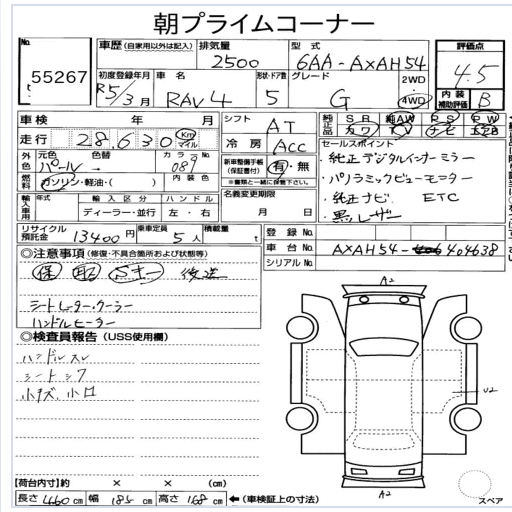 朝プライムコーナー
No.
55267
車歴 (自家用以外は記入)
排気量
2500
型式
6AA-AXAH54
評価点
4.5
初度登録年月
R5/3月
車名
RAV4
形状・ドア数
5
グレード
G
2WD
4WD
内装補助評価
B
車検 年 月
シフト
AT
純正品
SR 純AW PS PW
カワ TV ナビ エアB
走行 28,630 Km マイル
冷房
ACC
セールスポイント
・純正デジタルインナーミラー
外色
元色
パール
色替
→
カラーNo.
089
新車整備手帳
(保証書付)
有・無
※書類と一緒に保管下さい。
・パノラミックビューモニター
燃料
ガソリン・軽油・( )
内装色
・純正ナビ ETC
輸入車用
年式
輸入区分
ハンドル
名義変更期限
・黒レザー
ディーラー・並行
左・右
月 日
リサイクル預託金
13400円
乗車定員
5人
積載量
t
登録No.
車台No.
AXAH54-404638
シリアルNo.
◎注意事項 (修復・不具合箇所および状態等)
保 取 Sキー 後送
シートヒーター・クーラー
ハンドルヒーター
◎検査員報告 (USS使用欄)
ハンドルスレ
シートシワ
小キズ、小凹
A2
U2
A2
スペア
【荷台内寸】約 × × (cm)
長さ 460 cm 幅 185 cm 高さ 168 cm
←(車検証上の寸法)